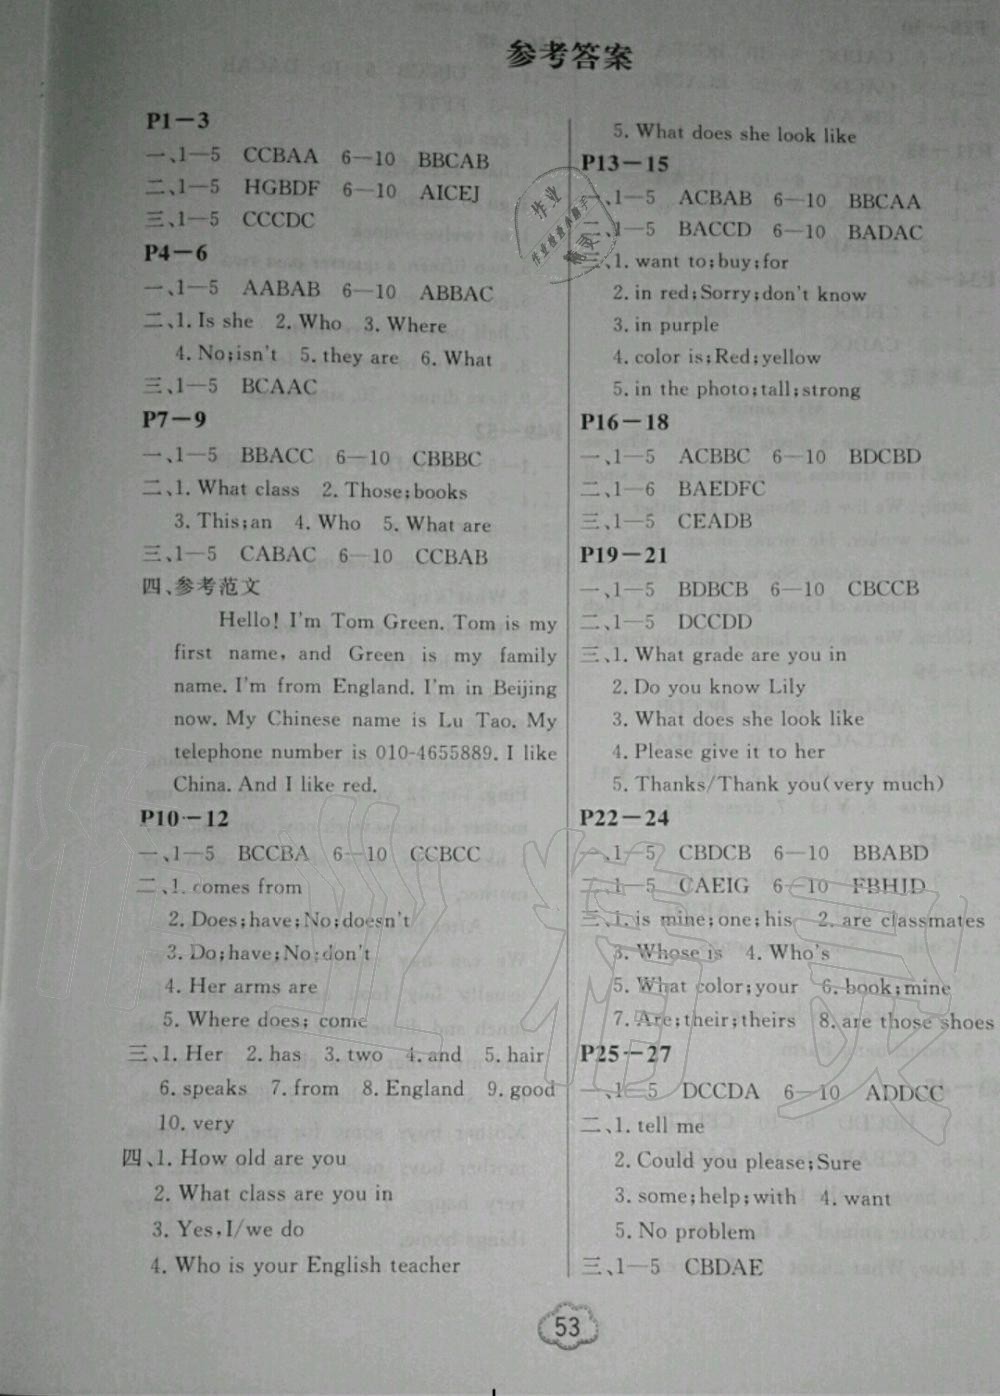 参考答案
P1－3
一、1—5 CCBAA 6—10 BBCAB
二、1—5 HGBDF 6—10 AICEJ
三、1—5 CCCDC
P4－6
一、1—5 AABAB 6—10 ABBAC
二、1. Is she 2. Who 3. Where
4. No;isn't 5. they are 6. What
三、1—5 BCAAC
P7－9
一、1—5 BBACC 6—10 CBBBC
二、1. What class 2. Those;books
3. This;an 4. Who 5. What are
三、1—5 CABAC 6—10 CCBAB
四、参考范文
Hello! I'm Tom Green. Tom is my
first name, and Green is my family
name. I'm from England. I'm in Beijing
now. My Chinese name is Lu Tao. My
telephone number is 010-4655889. I like
China. And I like red.
P10－12
一、1—5 BCCBA 6—10 CCBCC
二、1. comes from
2. Does;have;No;doesn't
3. Do;have;No;don't
4. Her arms are
5. Where does; come
三、1. Her 2. has 3. two 4. and 5. hair
6. speaks 7. from 8. England 9. good
10. very
四、1. How old are you
2. What class are you in
3. Yes,I/we do
4. Who is your English teacher
5. What does she look like
P13－15
一、1—5 ACBAB 6—10 BBCAA
二、1—5 BACCD 6—10 BADAC
三、1. want to;buy;for
2. in red;Sorry;don't know
3. in purple
4. color is;Red;yellow
5. in the photo;tall;strong
P16－18
一、1—5 ACBBC 6—10 BDCBD
二、1—6 BAEDFC
三、1—5 CEADB
P19－21
一、1—5 BDBCB 6—10 CBCCB
二、1—5 DCCDD
三、1. What grade are you in
2. Do you know Lily
3. What does she look like
4. Please give it to her
5. Thanks/Thank you(very much)
P22－24
一、1—5 CBDCB 6—10 BBABD
二、1—5 CAEIG 6—10 FBHJD
三、1. is mine;one;his 2. are classmates
3. Whose is 4. Who's
5. What color;your 6. book;mine
7. Are;their;theirs 8. are those shoes
P25－27
一、1—5 DCCDA 6—10 ADDCC
二、1. tell me
2. Could you please;Sure
3. some;help;with 4. want
5. No problem
三、1—5 CBDAE
53